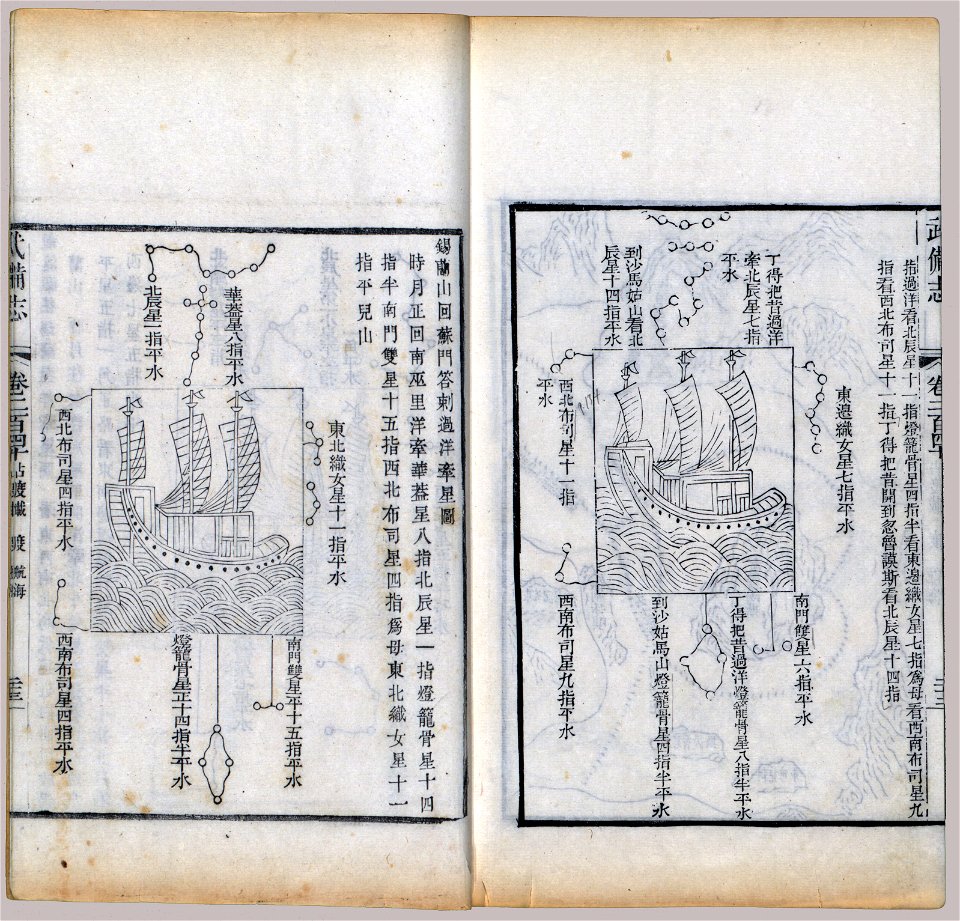 武備志
卷二百四十
三三
指過洋看北辰星十一指燈籠骨星四指半看東邊織女星七指為母看西南布司星九
指看西北布司星十一指丁得把昔開到忽魯謨斯看北辰星十四指
丁得把昔過洋
牽北辰星七指
平水
到沙馬姑山看北
辰星十四指平水
東邊織女星七指平水
西北布司星十一指
平水
南門雙星六指平水
丁得把昔過洋燈籠骨星八指半平水
到沙姑馬山燈籠骨星四指半平水
西南布司星九指平水
錫蘭山回蘇門答剌過洋牽星圖
時月正回南巫里洋牽華蓋星八指北辰星一指燈籠骨星十四
指半南門雙星十五指西北布司星四指爲母東北織女星十一
指平兒山
華蓋星八指平水
北辰星一指平水
東北織女星十一指平水
西北布司星四指平水
南門雙星平十五指平水
燈籠骨星正十四指半平水
西南布司星四指平水
武備志
卷二百四十
航海